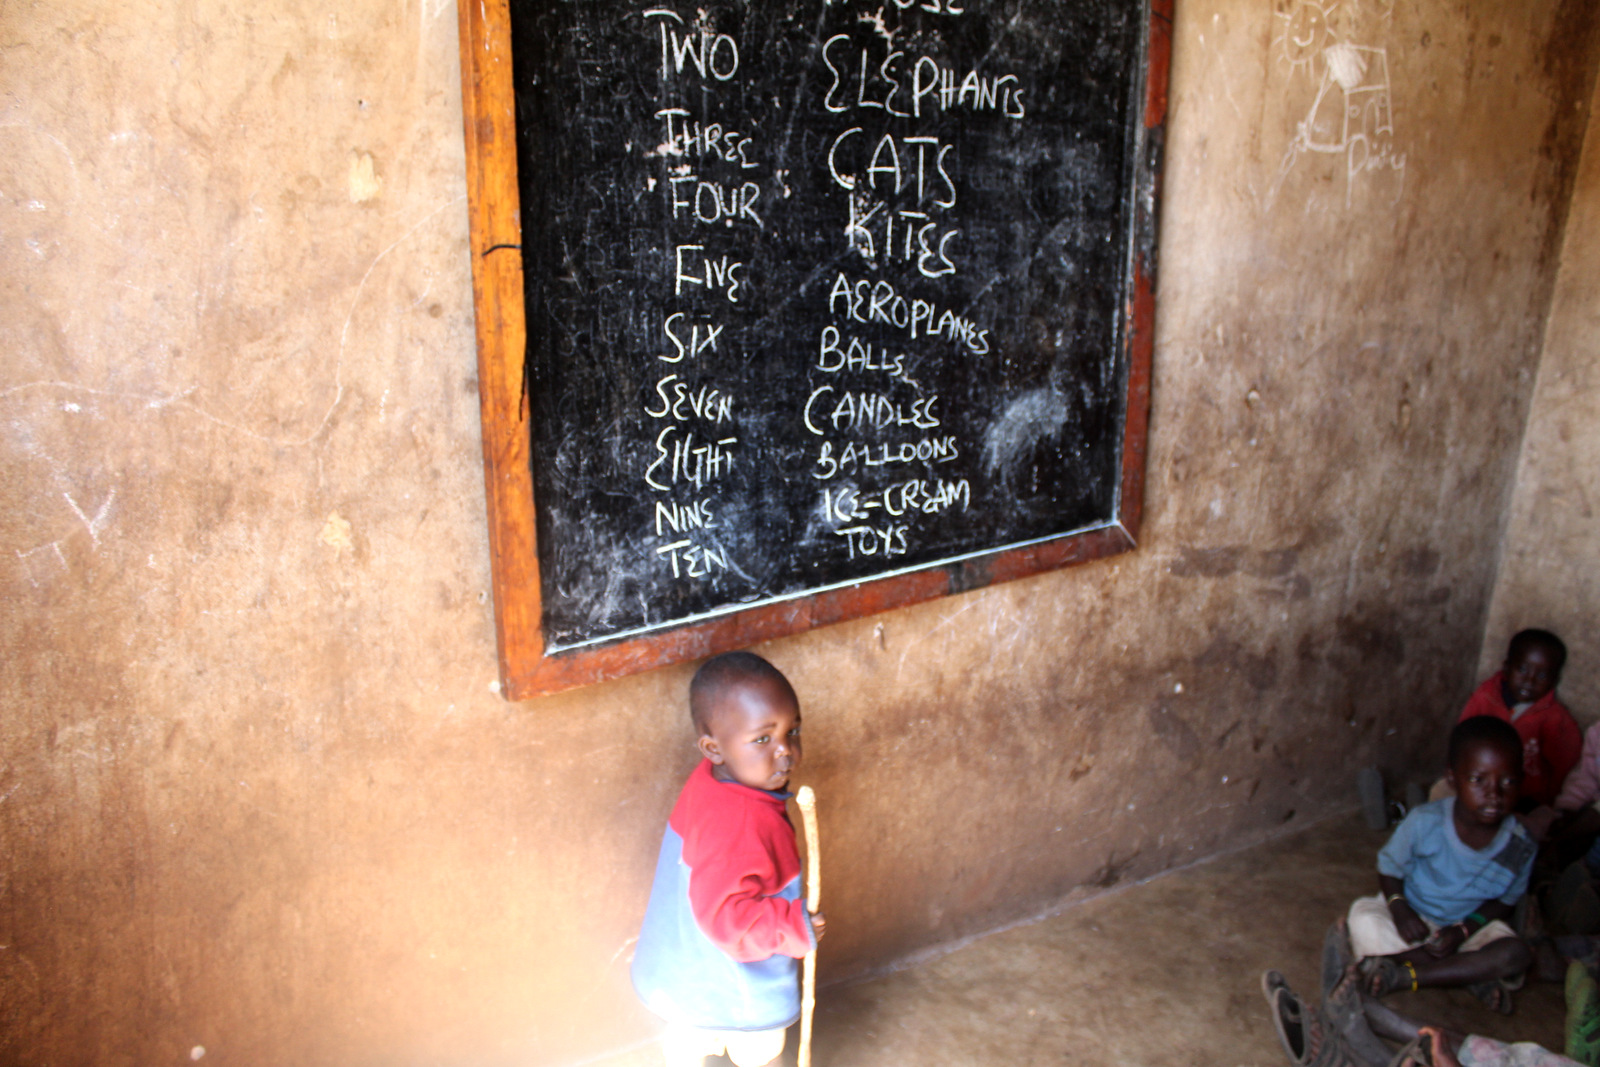 TWO ELEPHANTS
THREE CATS
FOUR KITES
FIVE AEROPLANES
SIX BALLS
SEVEN CANDLES
EIGHT BALLOONS
NINE ICE-CREAM
TEN TOYS